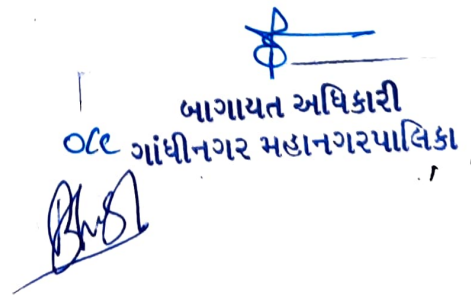 બાગાયત અધિકારી
occ ગાંધીનગર મહાનગરપાલિકા